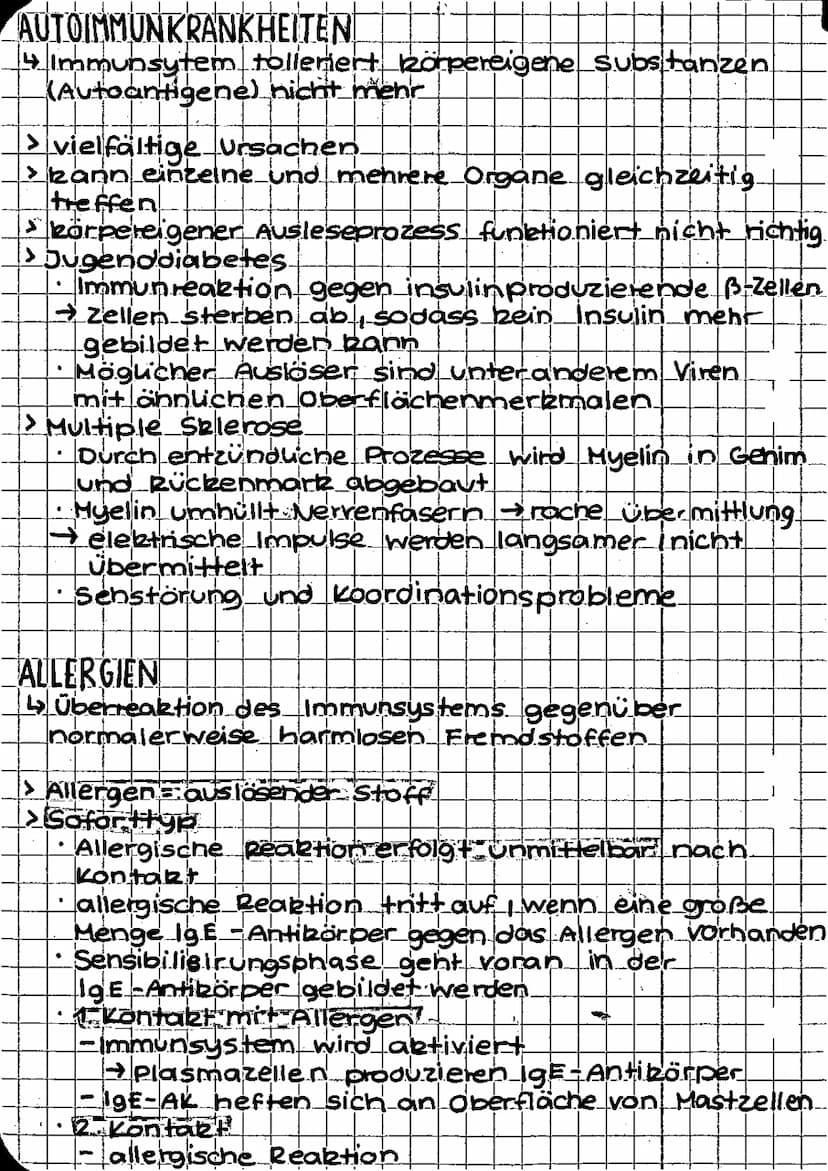 AUTOIMMUNKRANKHEITEN
↳ Immunsytem tolleriert körpereigene Substanzen
(Autoantigene) nicht mehr
> vielfältige Ursachen
> kann einzelne und mehrere Organe gleichzeitig
treffen
> körpereigener Ausleseprozess funktioniert nicht richtig
> Jugenddiabetes
· Immunreaktion gegen insulinproduzierende β-Zellen
→ Zellen sterben ab, sodass kein Insulin mehr
gebildet werden kann
· Möglicher Auslöser sind unter anderem Viren
mit ähnlichen Oberflächenmerkmalen
> Multiple Sklerose
· Durch entzündliche Prozesse wird Myelin in Gehirn
und Rückenmark abgebaut
· Myelin umhüllt Nervenfasern → rache übermittlung
→ elektrische Impulse werden langsamer / nicht
übermittelt
· Sehstörung und Koordinationsprobleme
ALLERGIEN
↳ Überreaktion des Immunsystems gegenüber
normalerweise harmlosen Fremdstoffen
> Allergen = auslösender Stoff
> Soforttyp
· Allergische Reaktion erfolgt unmittelbar nach
Kontakt
· allergische Reaktion tritt auf, wenn eine große
Menge IgE-Antikörper gegen das Allergen vorhanden
· Sensibilisirungsphase geht voran in der
IgE-Antikörper gebildet werden
· 1. Kontakt mit Allergen
- Immunsystem wird aktiviert
→ Plasmazellen produzieren IgE-Antikörper
- IgE-AK heften sich an Oberfläche von Mastzellen
· 2. Kontakt
- allergische Reaktion